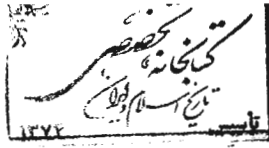 کتابخانه تخصصی
تاریخ اسلام و ایران
تأسیس ۱۳۷۲